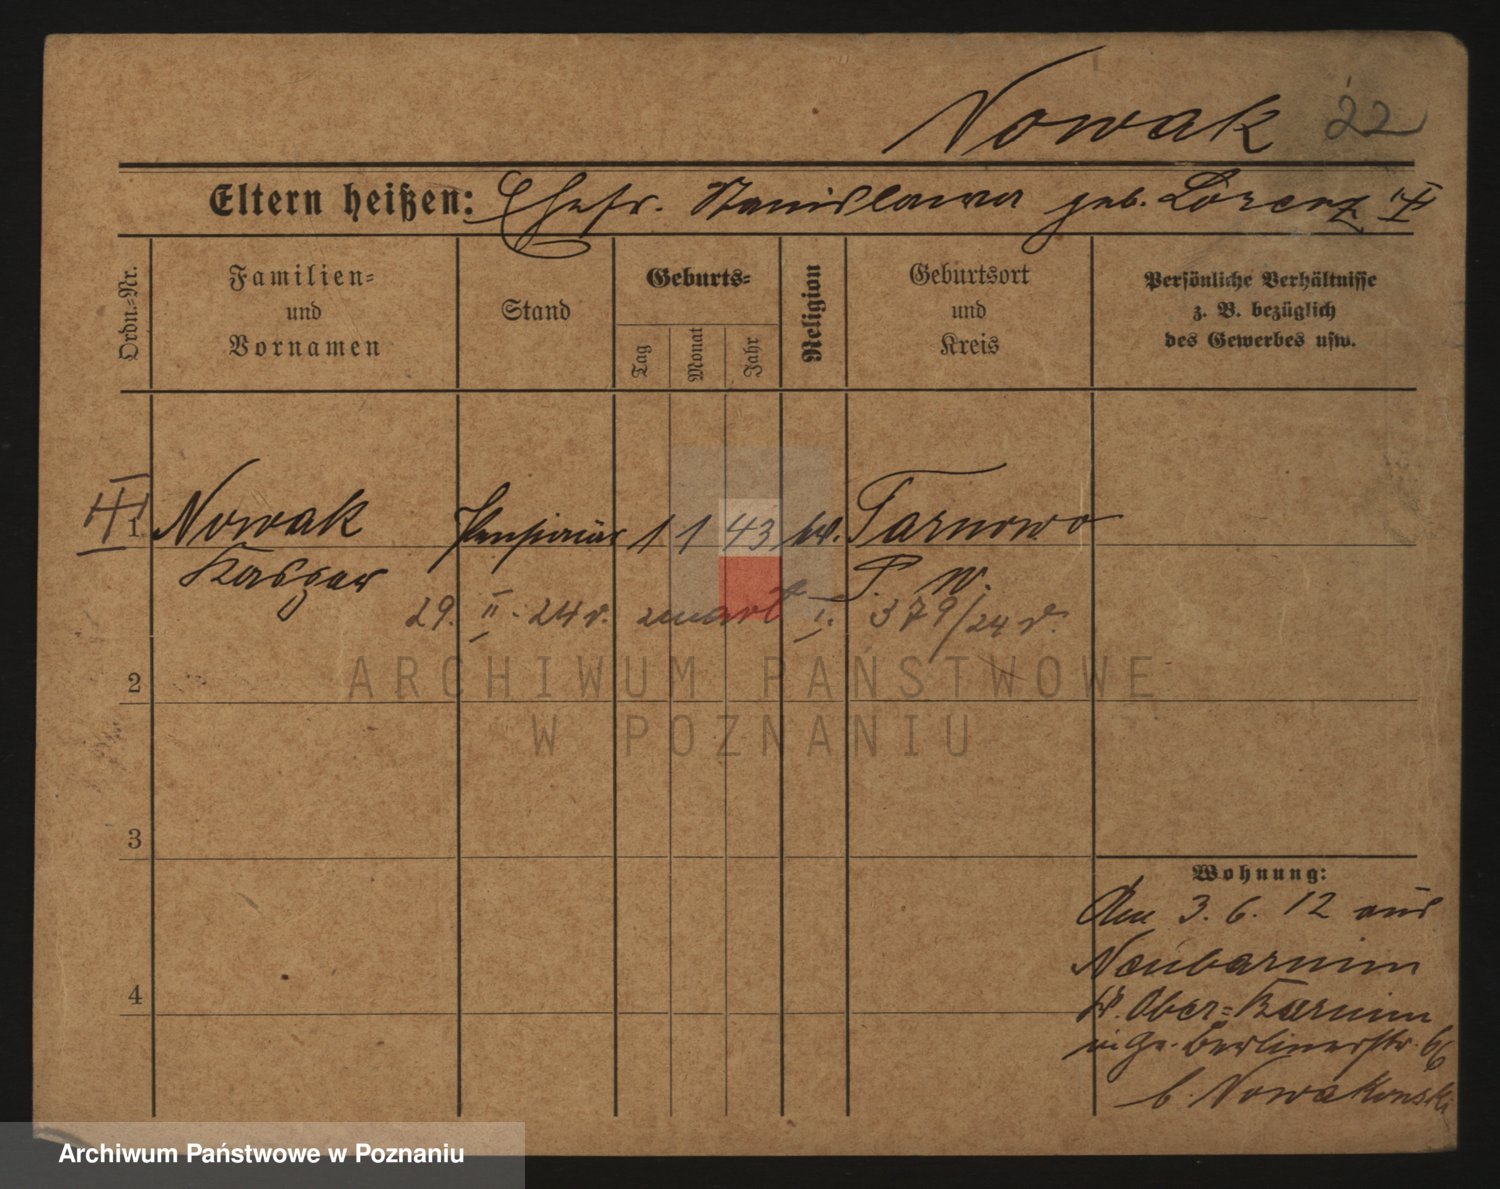 Nowak 22
Eltern heißen: Ehefr. Stanislawa geb. Lorenz
Ordn.-Nr.
Familien-
und
Vornamen
Stand
Geburts-
Tag
Monat
Jahr
Religion
Geburtsort
und
Kreis
Persönliche Verhältnisse
z. B. bezüglich
des Gewerbes usw.
1 Nowak Pensionär 1 1 43 kt. Tarnowo
Kasper P. W.
29. II. 24 r. zmarł I. 379/24 r.
2
ARCHIWUM PAŃSTWOWE
W POZNANIU
3
4
Wohnung:
Am 3. 6. 12 aus
Neubarnim
Kr. Ober-Barnim
in Gr. Berlinerstr. 66
b. Nowakowski
Archiwum Państwowe w Poznaniu